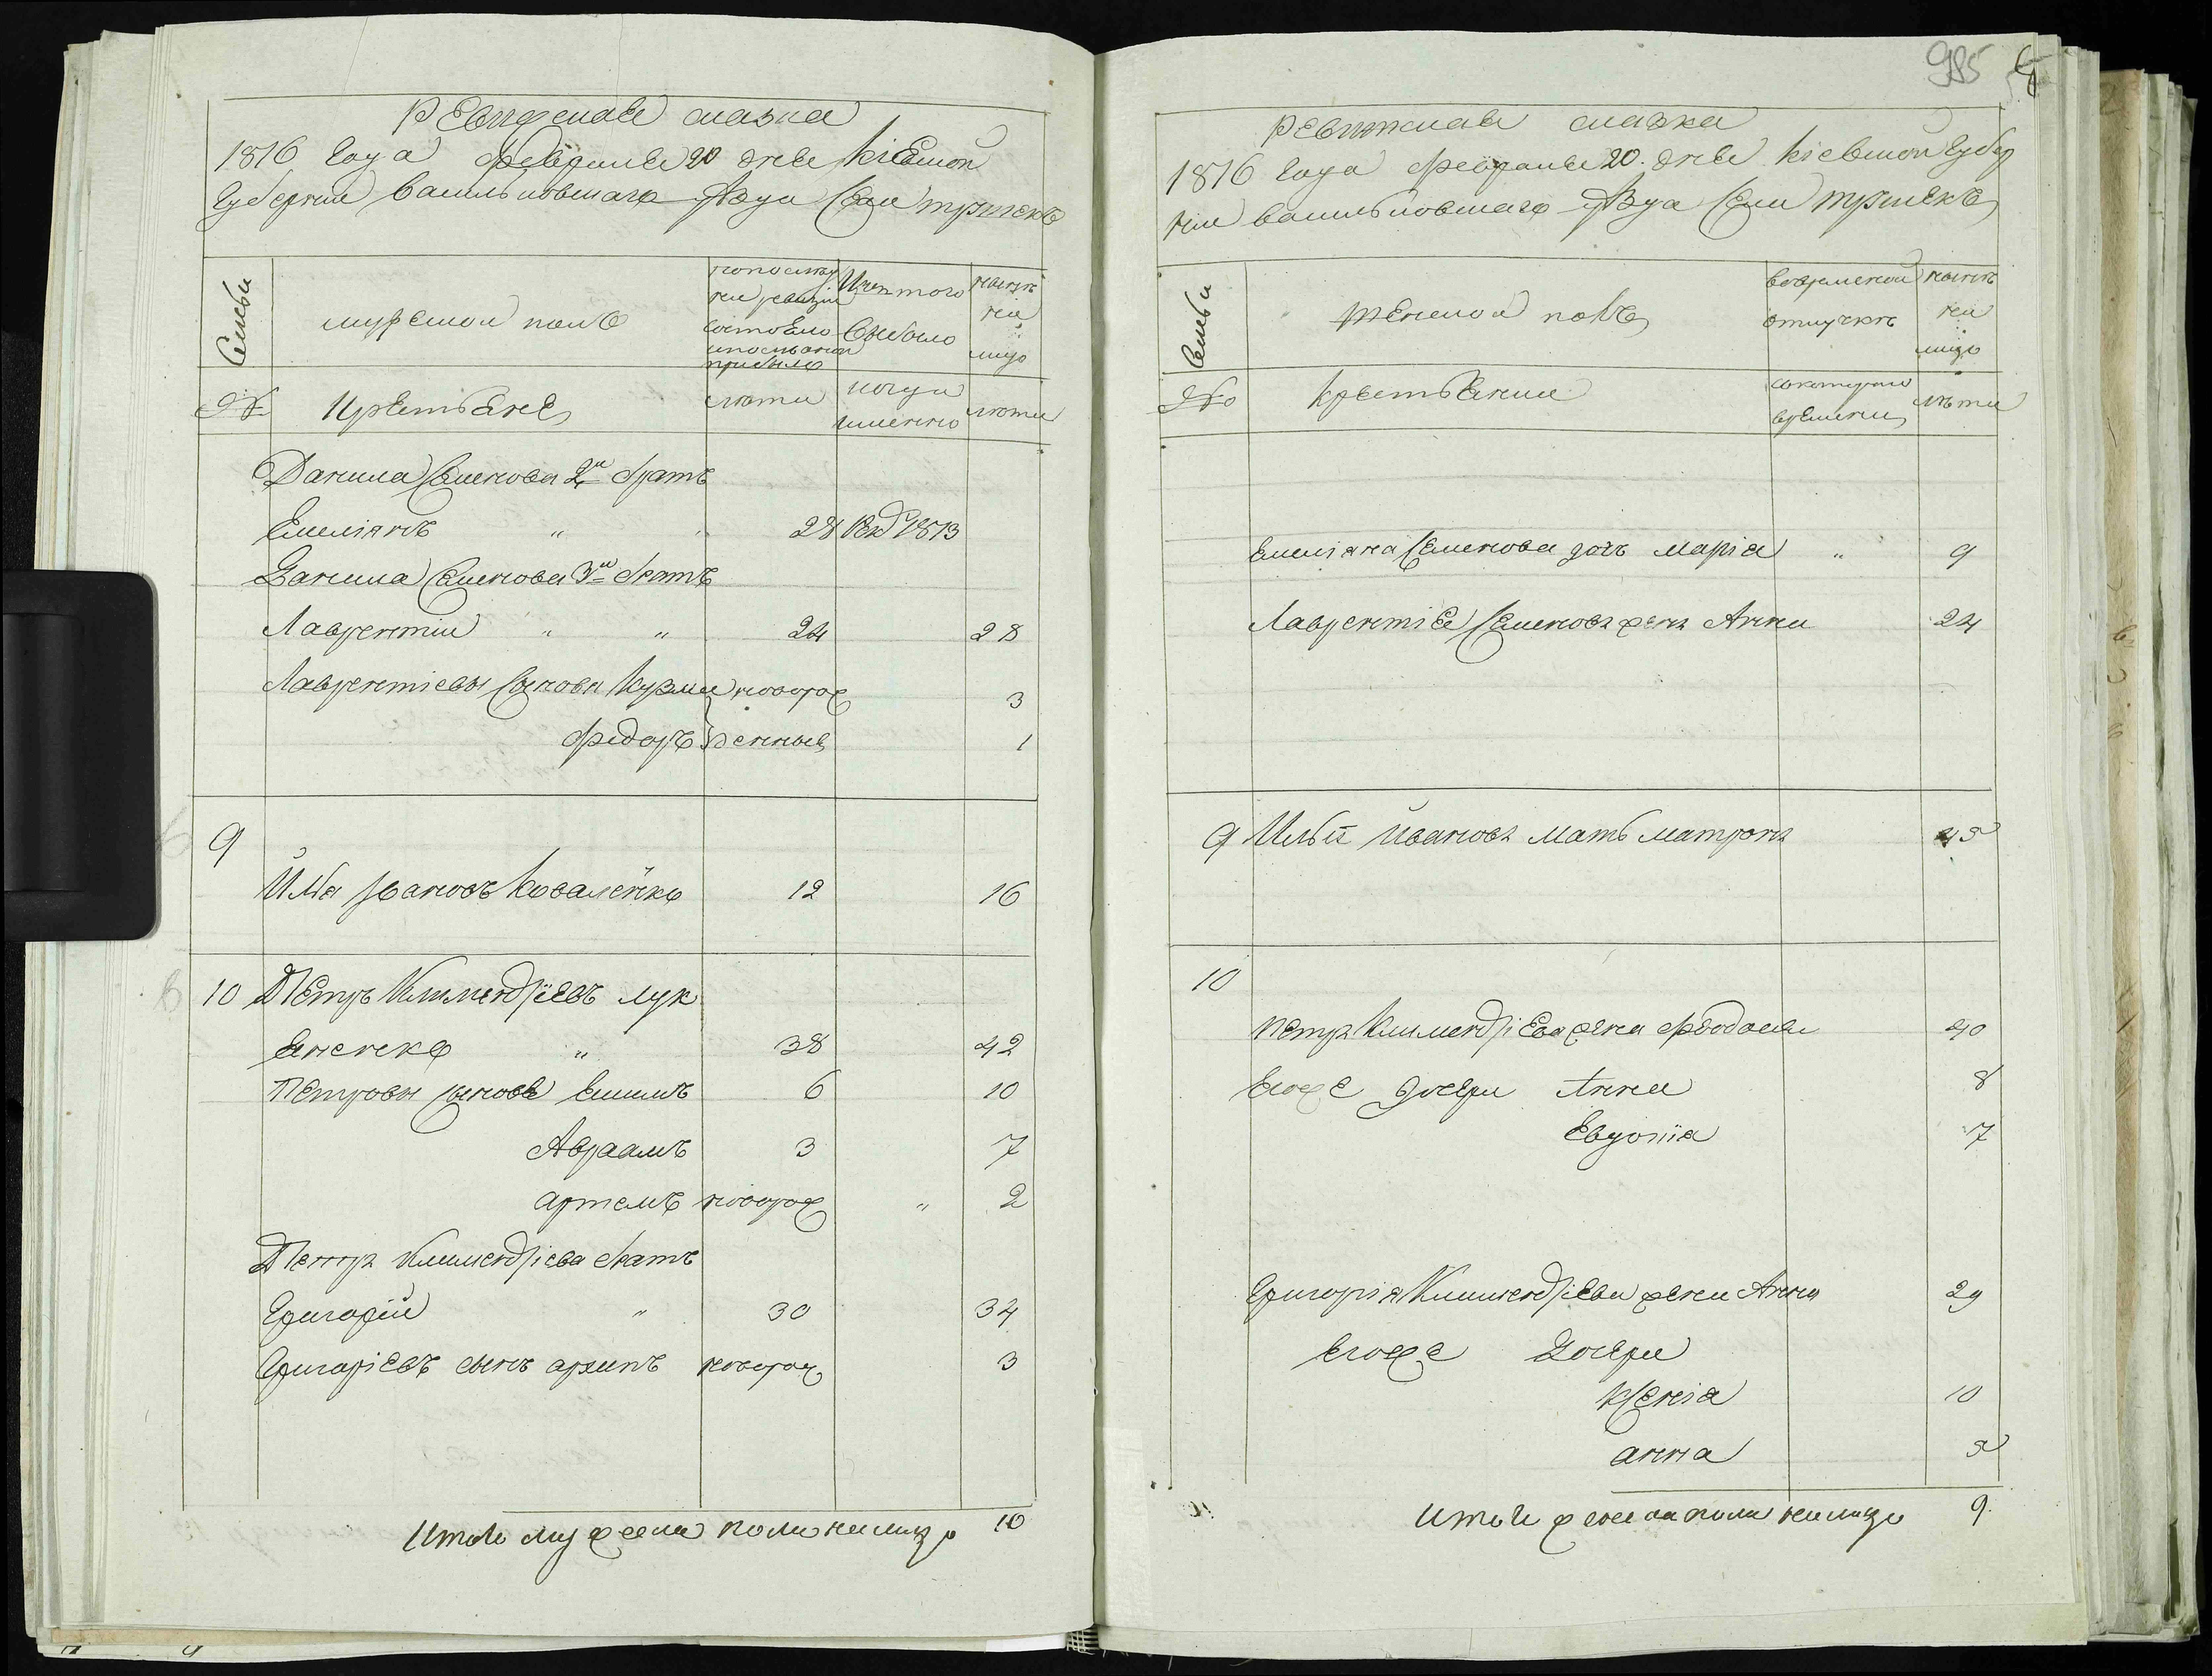 Ревижская сказка
1816 года февраля 20 дня Кіевской
Губерніи Васильковскаго уѣзда Села Трилѣсъ
Семьи
мужеской полъ
по послѣд
ней ревизіи
состояло
и после оной
прибыло
Изъ того
выбыло
нынѣ
на
лицо
№
Крестьяне
лѣта
когда
именно
лѣта
Данила Семенова 2й братъ
Емеліянъ " " 28 Рек 1813
Данила Семенова 3й братъ
Лаврентій " " 24 28
Лаврентіевы сынова Кузма новорож 3
Федоръ денныя 1
9
Илья Ивановъ Коваленко 12 16
10 Петръ Климендріевъ Лук
яненко " 38 42
Петровы сынове Емилъ 6 10
Авраамъ 3 7
Артемъ новорож " 2
Петра Климендріева братъ
Григорій " 30 34
Григоріевъ сынъ Архипъ новорож 3
Итого мужеска пола на лицо 10
985
Ревижская сказка
1816 года февраля 20. дня Кіевской Губер
ніи Васильковскаго уѣзда Села Трилѣсъ
Семьи
женской полъ
во временной
отлучкѣ
нынѣ
на
лицо
№
Крестьяне
съ котораго
времени
лѣта
Емеліяна Семенова дочь Маріа " 9
Лаврентія Семенова жена Анна 24
9 Ильи Иванова мать Матрона 45
10
Петра Климендріева жена Феодосія 40
Егоже дочери Анна 8
Евдокія 7
Григорія Климендріева жена Анна 29
Егоже Дочери
Ксенія 10
Анна 5
Итого женска пола на лицо 9